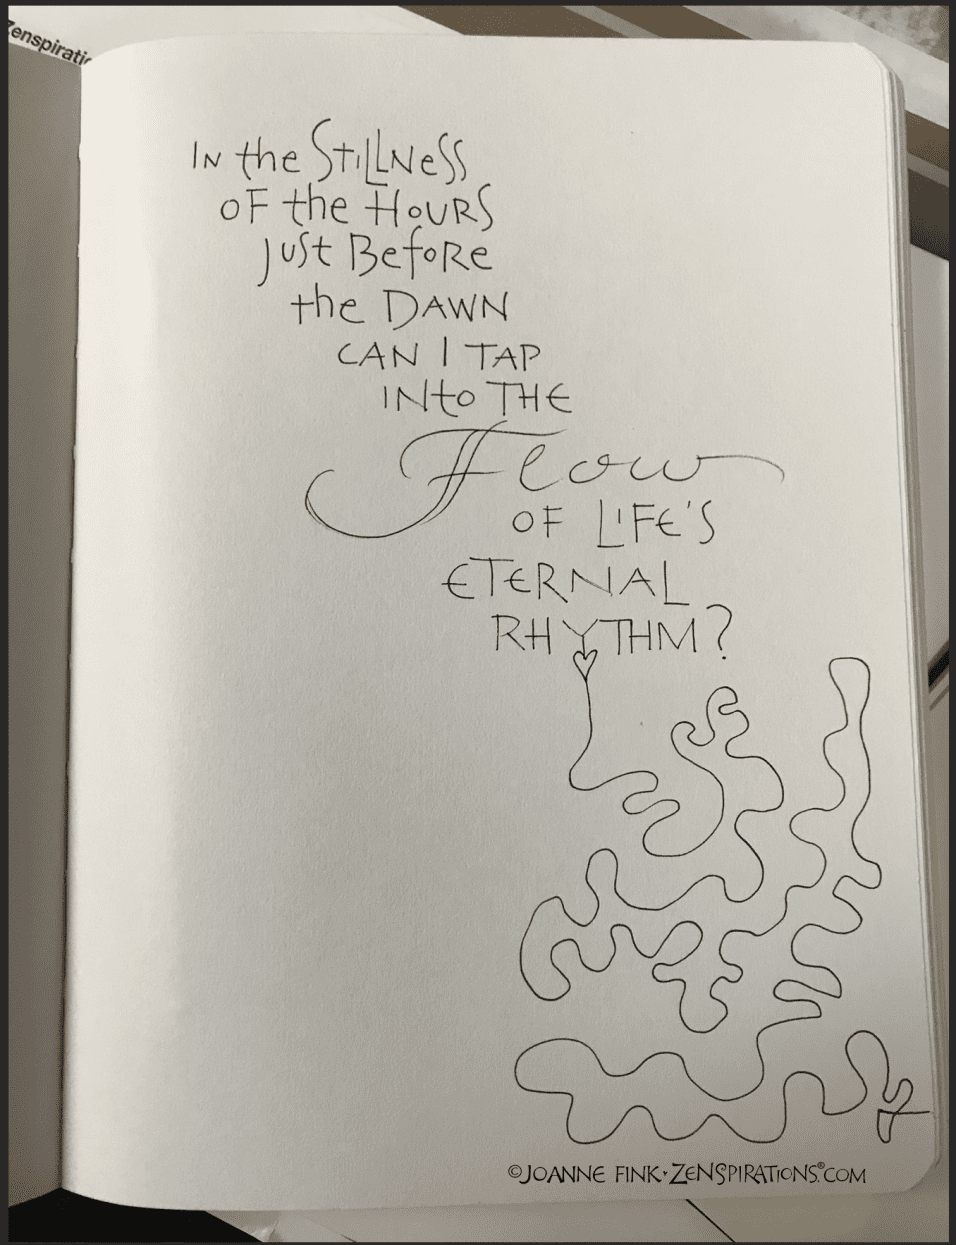 Zenspirati
In the Stillness
of the Hours
Just Before
the Dawn
can I tap
into the
Flow
of Life's
Eternal
Rhythm?
©Joanne Fink • Zenspirations®.com